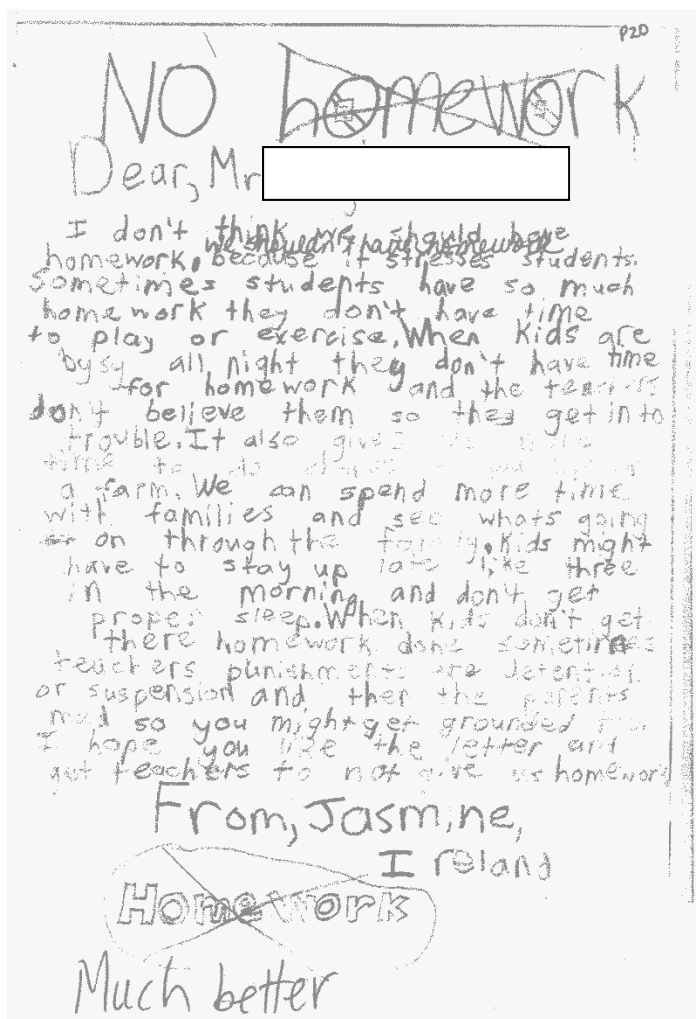 P20
NO homework
Dear, Mr
I don't think we should have
we shouldn't have homework
homework, because it stresses students.
Sometimes students have so much
homework they don't have time
to play or exercise. When kids are
bysy all night they don't have time
for homework and the teachers
don't believe them so they get into
trouble. It also gives us more
time to do
a farm. We can spend more time
with families and see whats going
on through the family. Kids might
have to stay up late like three
in the morning and don't get
proper sleep. When kids don't get
there homework done sometimes
teachers punishments are detention
or suspension and then the parents
mad so you might get grounded
I hope you like the letter and
get teachers to not give us homework
From, Jasmine,
Ireland
Homework
Much better